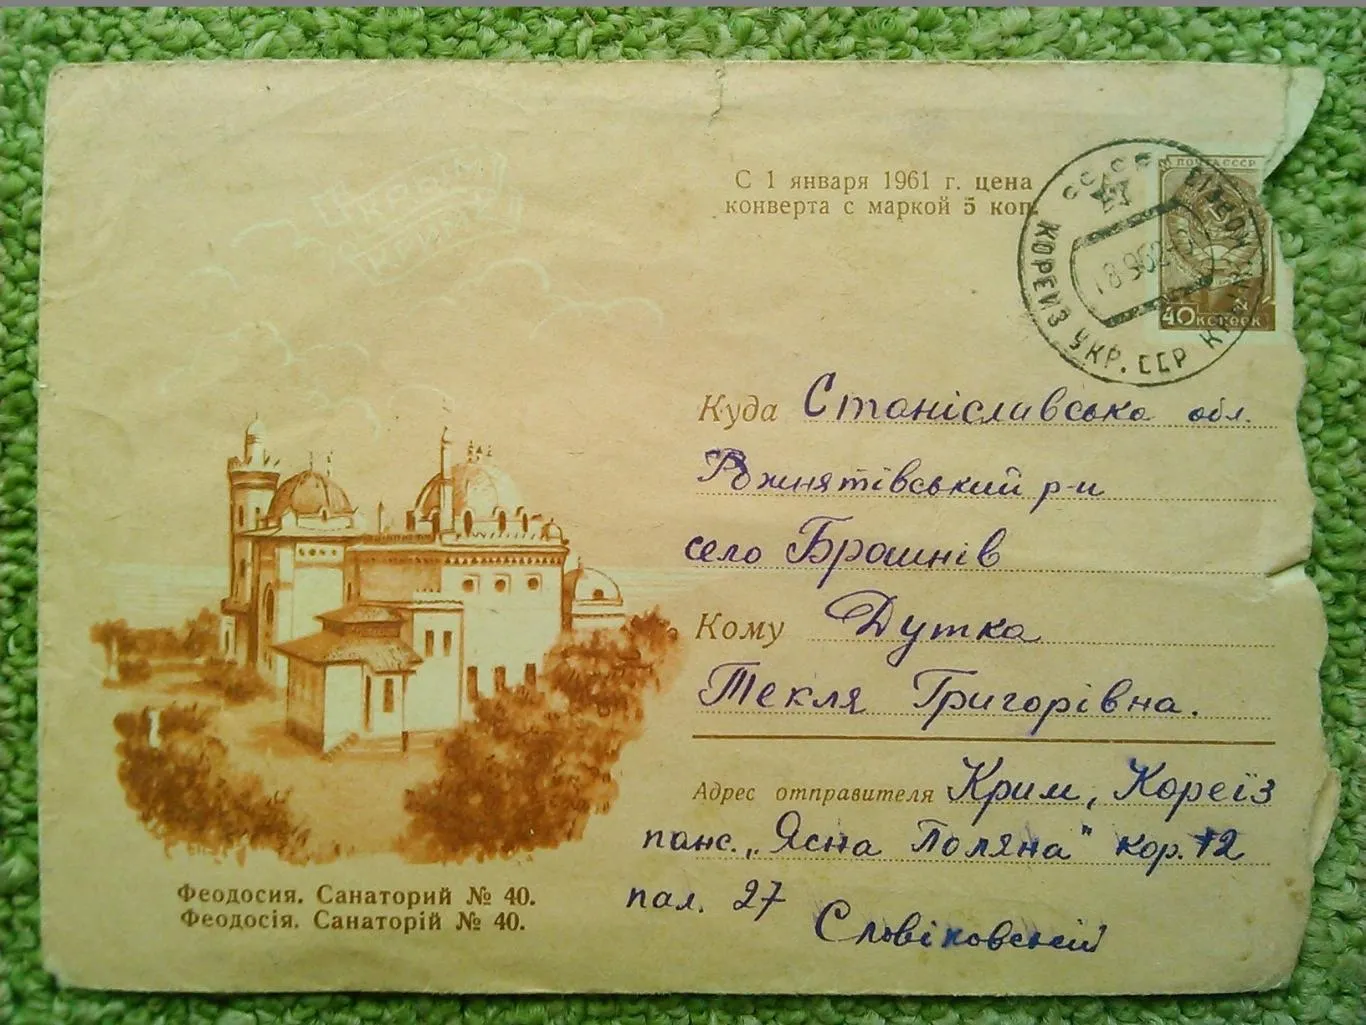 С 1 января 1961 г. цена
конверта с маркой 5 коп.
ПОЧТА СССР
40 КОПЕЕК
СССР
КОРЕИЗ УКР. ССР
Куда Станіславська обл.
Рожнятівський р-н
село Брошнів
Кому Дутка
Текля Григорівна.
Адрес отправителя Крим, Кореїз
панс. „Ясна Поляна" кор. 12
пал. 27
Словіковський
Феодосия. Санаторий № 40.
Феодосія. Санаторій № 40.